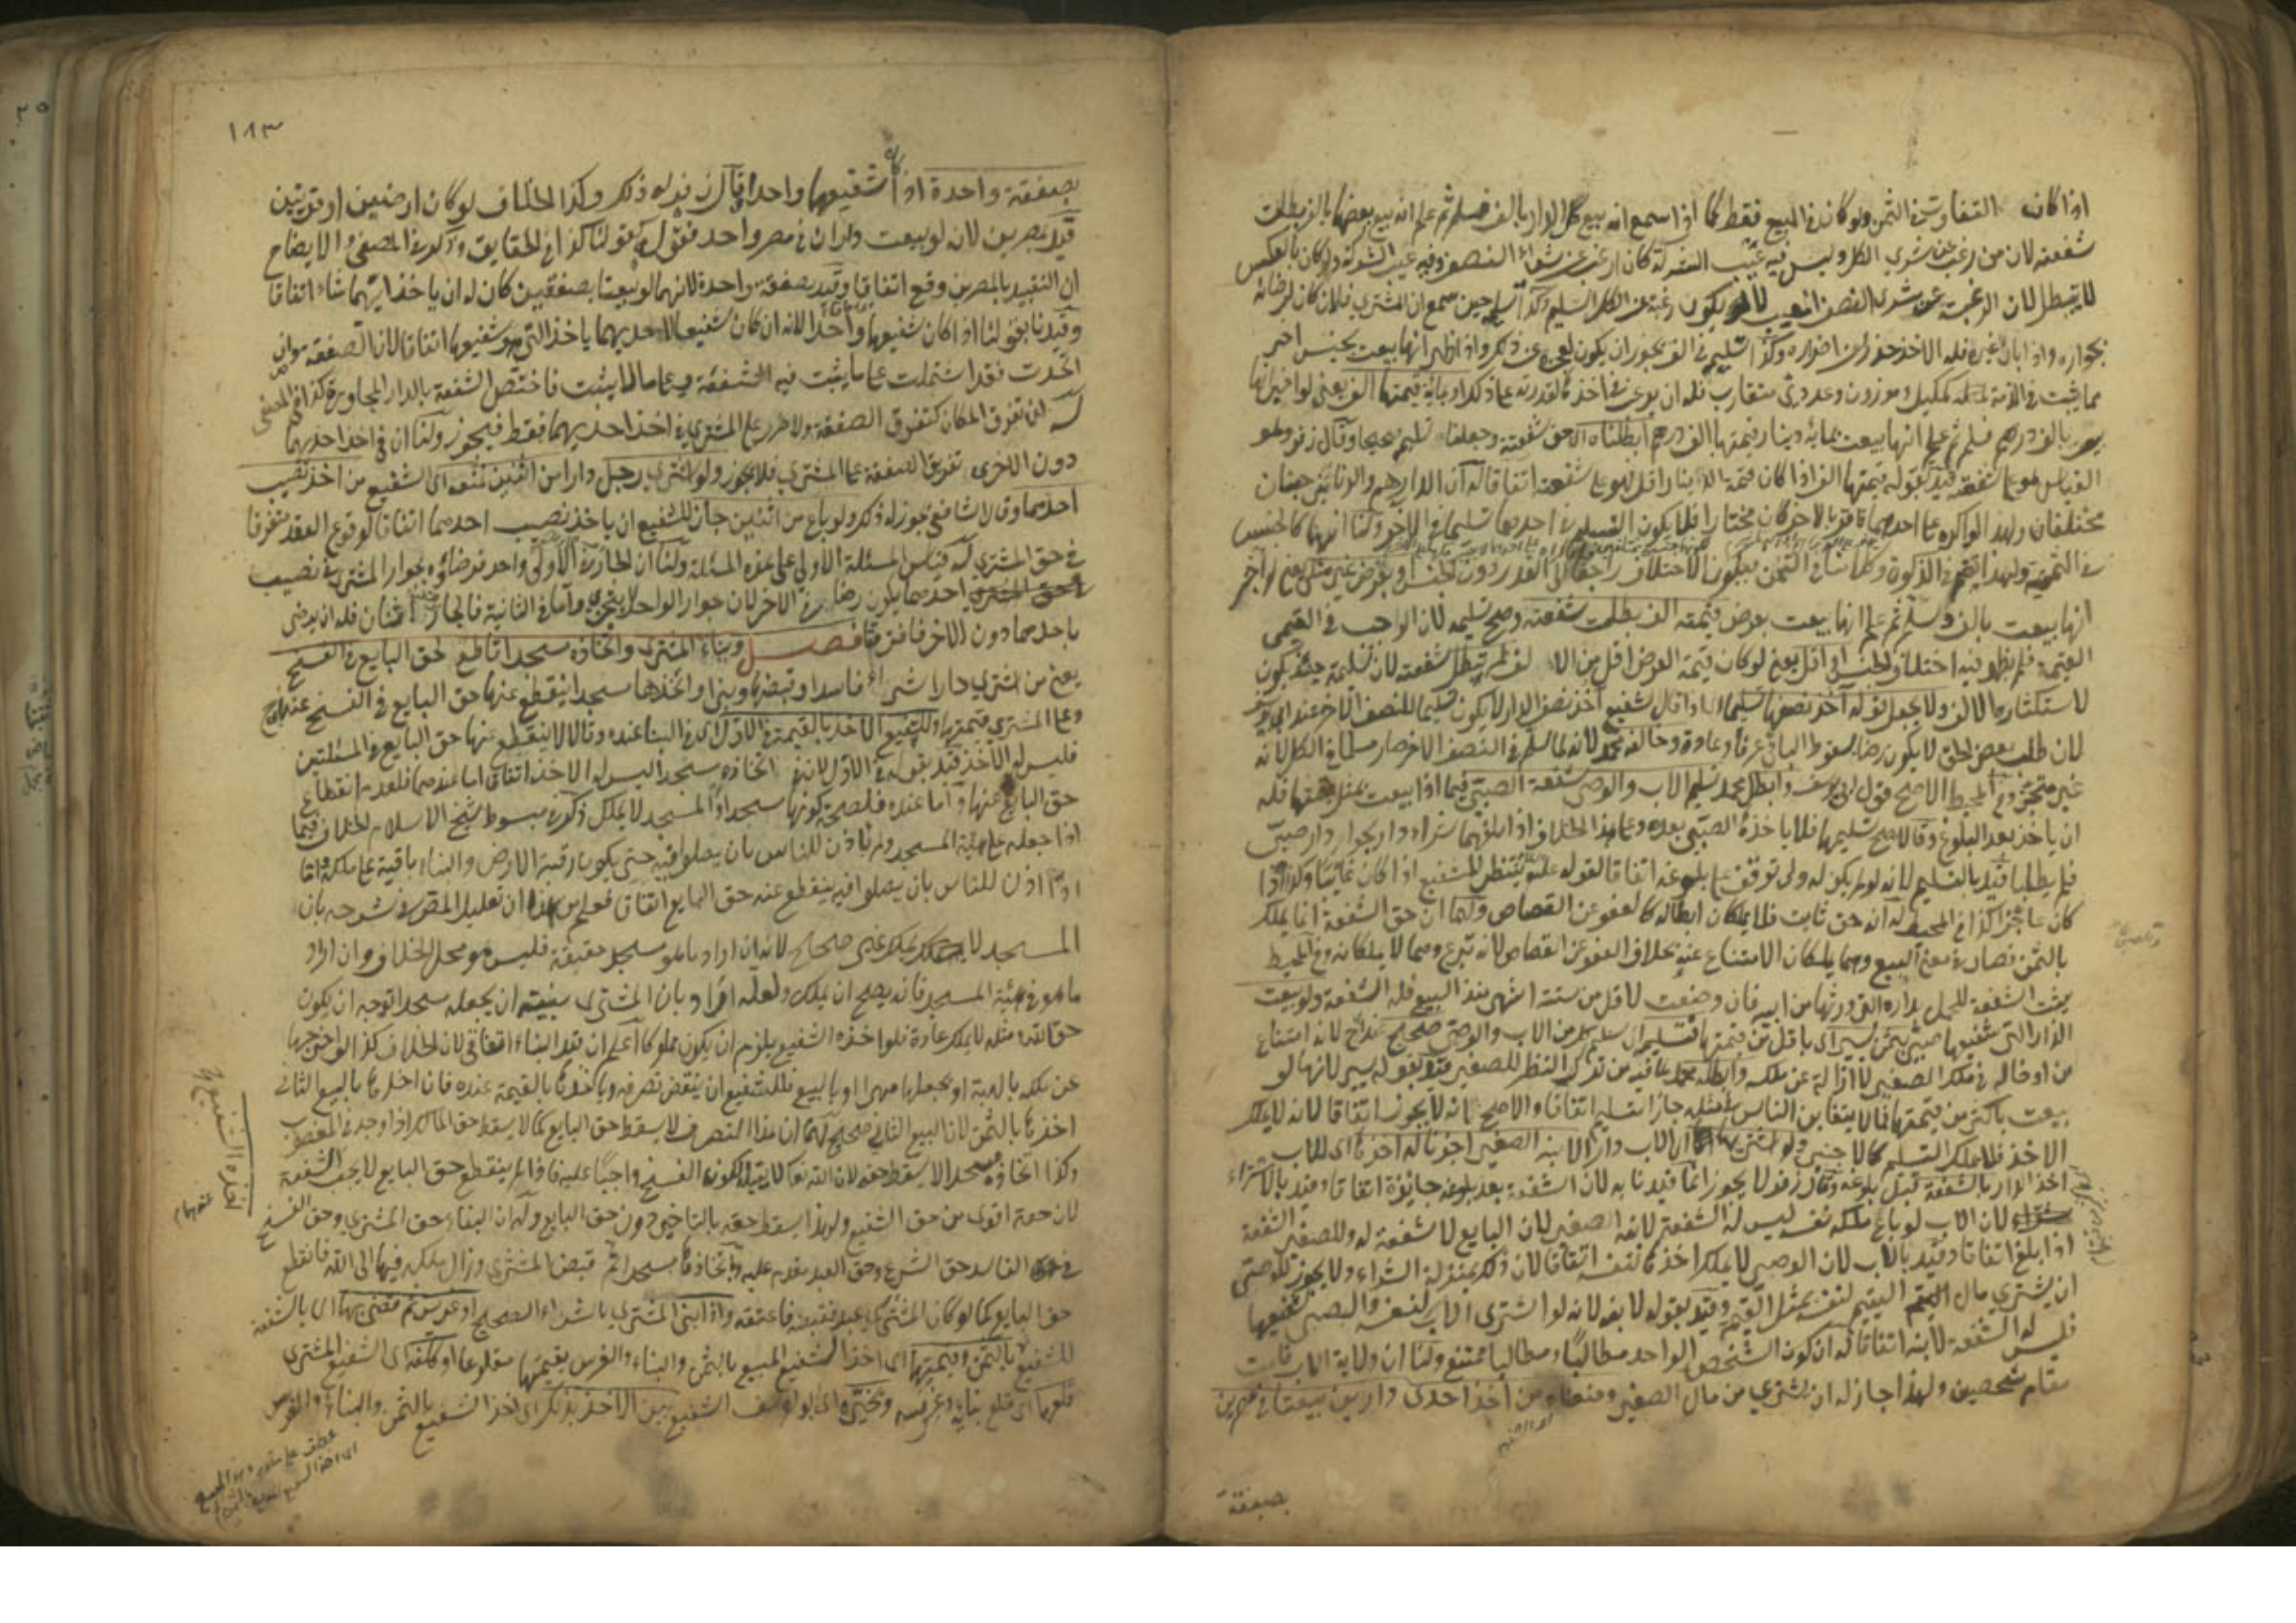 اذا كان التفاوت في الثمن ولو كان في المبيع فقط كما اذا سمع انه بيع كل الدار بالف فسلم ثم علم انه بيع بعضها بالف بطلت
شفعته لان من رغب عن شري الكل وليس فيه عيب الشركة كان ارغب عن شراء النصف وفيه عيب الشركة ولو كان بالعكس
لا يبطل لان الرغبة عن شري النصف لا يكون رغبة عن الكل التسليم وكذا تسليمه حين سمع ان المشتري فلان كان لرضائه
بجواره واذا بان غيره فله الاخذ حذرا عن اضراره وكذا التسليم في الف يجوز ان يكون لعجزه عن ذلك واذا ظهر انها بيعت بجنس اخر
مما يثبت في الذمة كمكيل وموزون وعددي متقارب فله ان يرغب في اخذه لقدرته على ذلك او بمائة قيمتها الف يعني لو اخبر انها
بيعت بالف درهم فسلم ثم علم انها بيعت بمائة دينار قيمتها الف درهم ابطلناه اي حق شفعته وجعلنا تسليمه صحيحا وقال زفر وهو
القياس هو على شفعته قيد بقوله قيمتها الف اذ لو كان قيمة الدينار اقل فهو على شفعته اتفاقا له ان الدراهم والدنانير جنسان
مختلفان ولهذا لو اكره على احدهما فاقر بالاخر كان مختارا فلا يكون التسليم في احدهما تسليما في الاخر ولنا انهما كالجنس
في الثمنية ولهذا يضم في الزكوة وكلامنا في الثمن فيكون الاختلاف راجعا الى القدر دون الجنس او بعرض غير مثلي يعني لو اخبر
انها بيعت بالف وسلم ثم علم انها بيعت بعرض قيمته الف بطلت شفعته وصح تسليمه لان الواجب في القيمي
القيمة فلم يظهر فيه اختلاف الجنس او اقل يعني لو كان قيمة العرض اقل من الالف لم تبطل شفعته لان تسليمه حينئذ يكون
لاستكثاره الالف ولا يجعل قوله آخذ نصفها تسليما اي اذا قال شفيع آخذ نصف الدار لا يكون تسليما للنصف الاخر عند ابي يوسف
لان طلب بعض الحق لا يكون رضا بسقوط الباقي عرفا وعادة وخالفه محمد لانه لما سلم في النصف الاخر صار مسلما في الكل لانه
غير متجز وفي المحيط الاصح قول ابي يوسف وابطل محمد تسليم الاب والوصي شفعة الصبي فيما اذا بيعت بمثل قيمتها فله
ان ياخذ بعد البلوغ وقالا صح تسليمهما فلا ياخذه الصبي بعده وعلى هذا الخلاف اذا بلغهما شراء دار بجوار دار صبي
فلم يطلبا قيد بالتسليم لانه لو لم يكن له ولي توقف على بلوغه اتفاقا لقوله عليه ينتظر للشفيع اذا كان غائبا وكذا اذا
كان عاجزا كذا في المحيط له انه حق ثابت فلا يملكان ابطاله كالعفو عن القصاص ولهما ان حق الشفعة انما يملك
بالثمن فصار في معنى البيع وهما يملكان الامتناع عنه بخلاف العفو عن القصاص لانه تبرع وهما لا يملكانه وفي المحيط
يثبت الشفعة للحمل بداره التي ورثها من ابيه فان وضعت لاقل من ستة اشهر منذ البيع فله الشفعة ولو بيعت
الدار التي شفيعها صبي بثمن يسير اي باقل من قيمتها فتسليم اي تسليم كل من الاب والوصي صحيح عند ابي ح لانه امتناع
من ادخاله في ملك الصغير لا ازالة عن ملكه وابطله محمد على قيد من ترك النظر للصغير قيد بقوله يسير لانها لو
بيعت باكثر من قيمتها فيما لا يتغابن الناس بمثله جاز التسليم اتفاقا والاصح انه لا يجوز اتفاقا لانه لا يملك
الاخذ فلا يملك التسليم كالاجنبي ولو اشترى الاب دارا لابنه الصغير اجزنا له اخذها اي للاب
اخذ الدار بالشفعة قبل بلوغه وقال زفر لا يجوز انما قيدنا به لان الشفعة بعد بلوغه جائزة اتفاقا وقيد بالشراء
لان الاب لو باع ملكه نفسه ليس له الشفعة لابنه الصغير لان البايع لا شفعة له وللصغير الشفعة
اذا بلغ اتفاقا وقيد بالاب لان الوصي لا يملك اخذها لنفسه اتفاقا لان ذلك بمنزلة الشراء ولا يجوز للوصي
ان يشتري مال اليتيم لنفسه بمثل القيمة وقيد بقوله لابنه لانه لو اشترى الاب لنفسه والصبي شفيعها
فليس له الشفعة لابنه اتفاقا له ان كون الشخص الواحد مطالبا ومطالبا ممتنع ولنا ان ولاية الاب قامت
مقام شخصين ولهذا جاز له ان يشتري من مال الصغير ومنعناه من اخذ احدى دارين بيعتا في مصرين
بصفقة
١٨٣
بصفقة واحدة اذا كان شفيعهما واحدا وقال زفر له ذلك وكذا الخلاف لو كان ارضين او قريتين
قيد بمصرين لانه لو بيعت داران في مصر واحد فقول زفر كقولنا كذا في الحقايق وذكر في المصفى والايضاح
ان التقييد بالمصرين وقع اتفاقا وقيد بصفقة واحدة لانهما لو بيعتا بصفقتين كان له ان ياخذ ايهما شاء اتفاقا
وقيدنا بقولنا اذا كان شفيعهما واحدا لانه ان كان شفيعا لاحديهما ياخذ التي هو شفيعها اتفاقا لان الصفقة وان
اتحدت فقد اشتملت على ما يثبت فيه الشفعة وعلى ما لا يثبت فاختص الشفعة بالدار المجاورة كذا في المصفى
له ان تفرق المكان كتفرق الصفقة ولا ضرر على المشتري في اخذ احديهما فقط فيجوز ولنا ان في اخذ احديهما
دون الاخرى تفريق الصفقة على المشتري فلا يجوز ولو اشترى رجل دارا من اثنين نمنعه اي الشفيع من اخذ نصيب
احدهما وقال الشافعي يجوز له ذلك ولو باع من اثنين جاز للشفيع ان ياخذ نصيب احدهما اتفاقا لوقوع العقد متفرقا
في حق المشتري له قياس المسئلة الاولى على هذه المسئلة ولنا ان الجار في الاولى واحد فرضاؤه بجوار المشتري في نصيب
احدهما يكون رضا في الاخر لان جوار الواحد لا يتجزى واما في الثانية فالجار اثنان فله ان يرضى
باحدهما دون الاخر فافترقا فصل وبناء المشتري واتخاذه مسجدا قاطع لحق البايع في الفسخ
يعني من اشترى دارا شراء فاسدا وقبضها وبنى او اتخذها مسجدا ينقطع عنها حق البايع في الفسخ عند ابي ح
وعلى المشتري قيمتها وللشفيع الاخذ بالقيمة في الاول اي في البناء عنده وقالا لا ينقطع عنها حق البايع في المسئلتين
فليس له الاخذ قيد بقوله في الاول لان في اتخاذه مسجدا ليس له الاخذ اتفاقا اما عندهما فلعدم انقطاع
حق البايع عنها واما عنده فلصحة كونها مسجدا والمسجد لا يملك ذكر في مبسوط شيخ الاسلام الخلاف فيما
اذا جعله على هيئة المسجد ولم ياذن للناس بان يصلوا فيه حتى يكون رقبة الارض والبناء باقية على ملكه اما
اذا اذن للناس بان يصلوا فيه ينقطع عنه حق البايع اتفاقا فعلم من هذا ان تعليل المص في شرحه بان
المسجد لا يملك غير صحيح لانه ان اراد به ما هو مسجد حقيقة فليس هو محل الخلاف وان اراد
ما هو في هيئة المسجد فانه يصلح ان يملك ولعله اراد بان المشتري بنيته ان يجعله مسجدا توجه ان يكون
حق الله مثله لا يملك عادة فلو اخذه الشفيع يلزم ان يكون مملوكا اعلم ان قيد البناء اتفاقي لان الخلاف كذا لو اخرجها
عن ملكه بالهبة او بجعلها مهرا او بالبيع فللشفيع ان ينقض تصرفه وياخذها بالقيمة عنده فان اخذها بالبيع الثاني
اخذها بالثمن لان البيع الثاني صحيح لهما ان هذا التصرف لا يسقط حق البايع كما لا يسقط حق المالك اذا وجد في المغصوب
وكذا اتخاذه مسجدا لا يسقط حقه لان الله تعالى لا يقبله لكون الفسخ واجبا عليه فاذا لم ينقطع حق البايع لا يجب الشفعة
لان حقه اقوى من حق الشفيع ولهذا يسقط حقه بالتاخير دون حق البايع وله ان البناء حق المشتري وحق الفسخ
في الفاسد حق الشرع وحق العبد مقدم عليه وباتخاذها مسجدا تم قبض المشتري وزال ملكه فيها الى الله فانقطع
حق البايع كما لو كان المشترى عبدا فقبضه فاعتقه واذا بنى المشتري بالشراء الصحيح او غرس ثم قضي بها اي بالشفعة
للشفيع بالثمن وقيمتها اي اخذ الشفيع المبيع بالثمن والبناء والغرس بقيمتهما مقلوعا او كلفه اي الشفيع المشتري
قلعهما اي قلع بنائه وغرسه وتخييره اي ابو يوسف الشفيع بين الاخذ بذلك اي اخذ الشفيع بالثمن والبناء والغرس
اخذه الشفيع